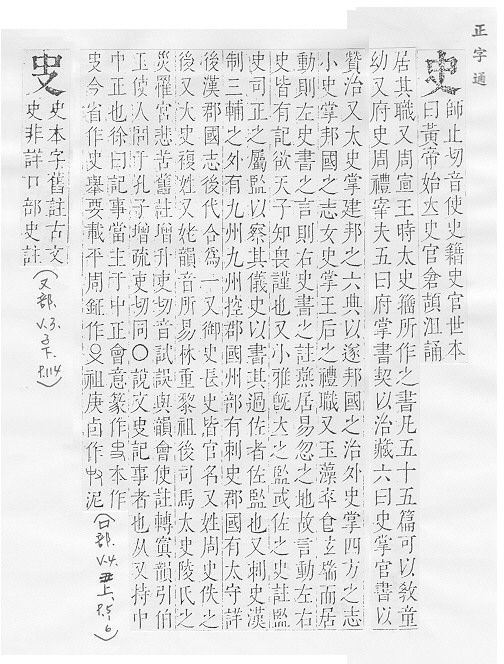 正字通
史
師止切音使史籍史官世本
曰黃帝始立史官倉頡沮誦
居其職又周宣王時太史籀所作之書凡五十五篇可以敎童
幼又府史周禮宰夫五曰府掌官契以治藏六曰史掌官書以
贊治又太史掌建邦之六典以逆邦國之治外史掌四方之志
小史掌邦國之志女史掌王后之禮職又玉藻卒食玄端而居
動則左史書之言則右史書之註燕居易忽之地故言動左右
史皆有記欲天子知畏謹也又小雅旣立之監或佐之史註監
史司正之屬監以察其儀史以書其過佐者佐監也又刺史漢
制三輔之外有九州九州控郡國州部有刺史郡國有太守詳
後漢郡國志後代合爲一又御史長史皆官名又姓周史佚之
後又大史複姓又姥韻音所易林重黎祖後司馬太史陵氏之
災罹宮悲苦舊註增升吏切音試誤與韻會使註轉寘韻引伯
玉使人問于孔子增疏吏切同〇說文㕜記事者也从又持中
中正也徐曰記事當主于中正會意篆作㕜本作
㕜今省作史舉要載平周鉦作 祖庚卣作 泥
(口部.V.4.丑上、P.5,6)
㕜
史本字舊註古文
史非詳口部史註
(又部.V.3.子下.P.114)